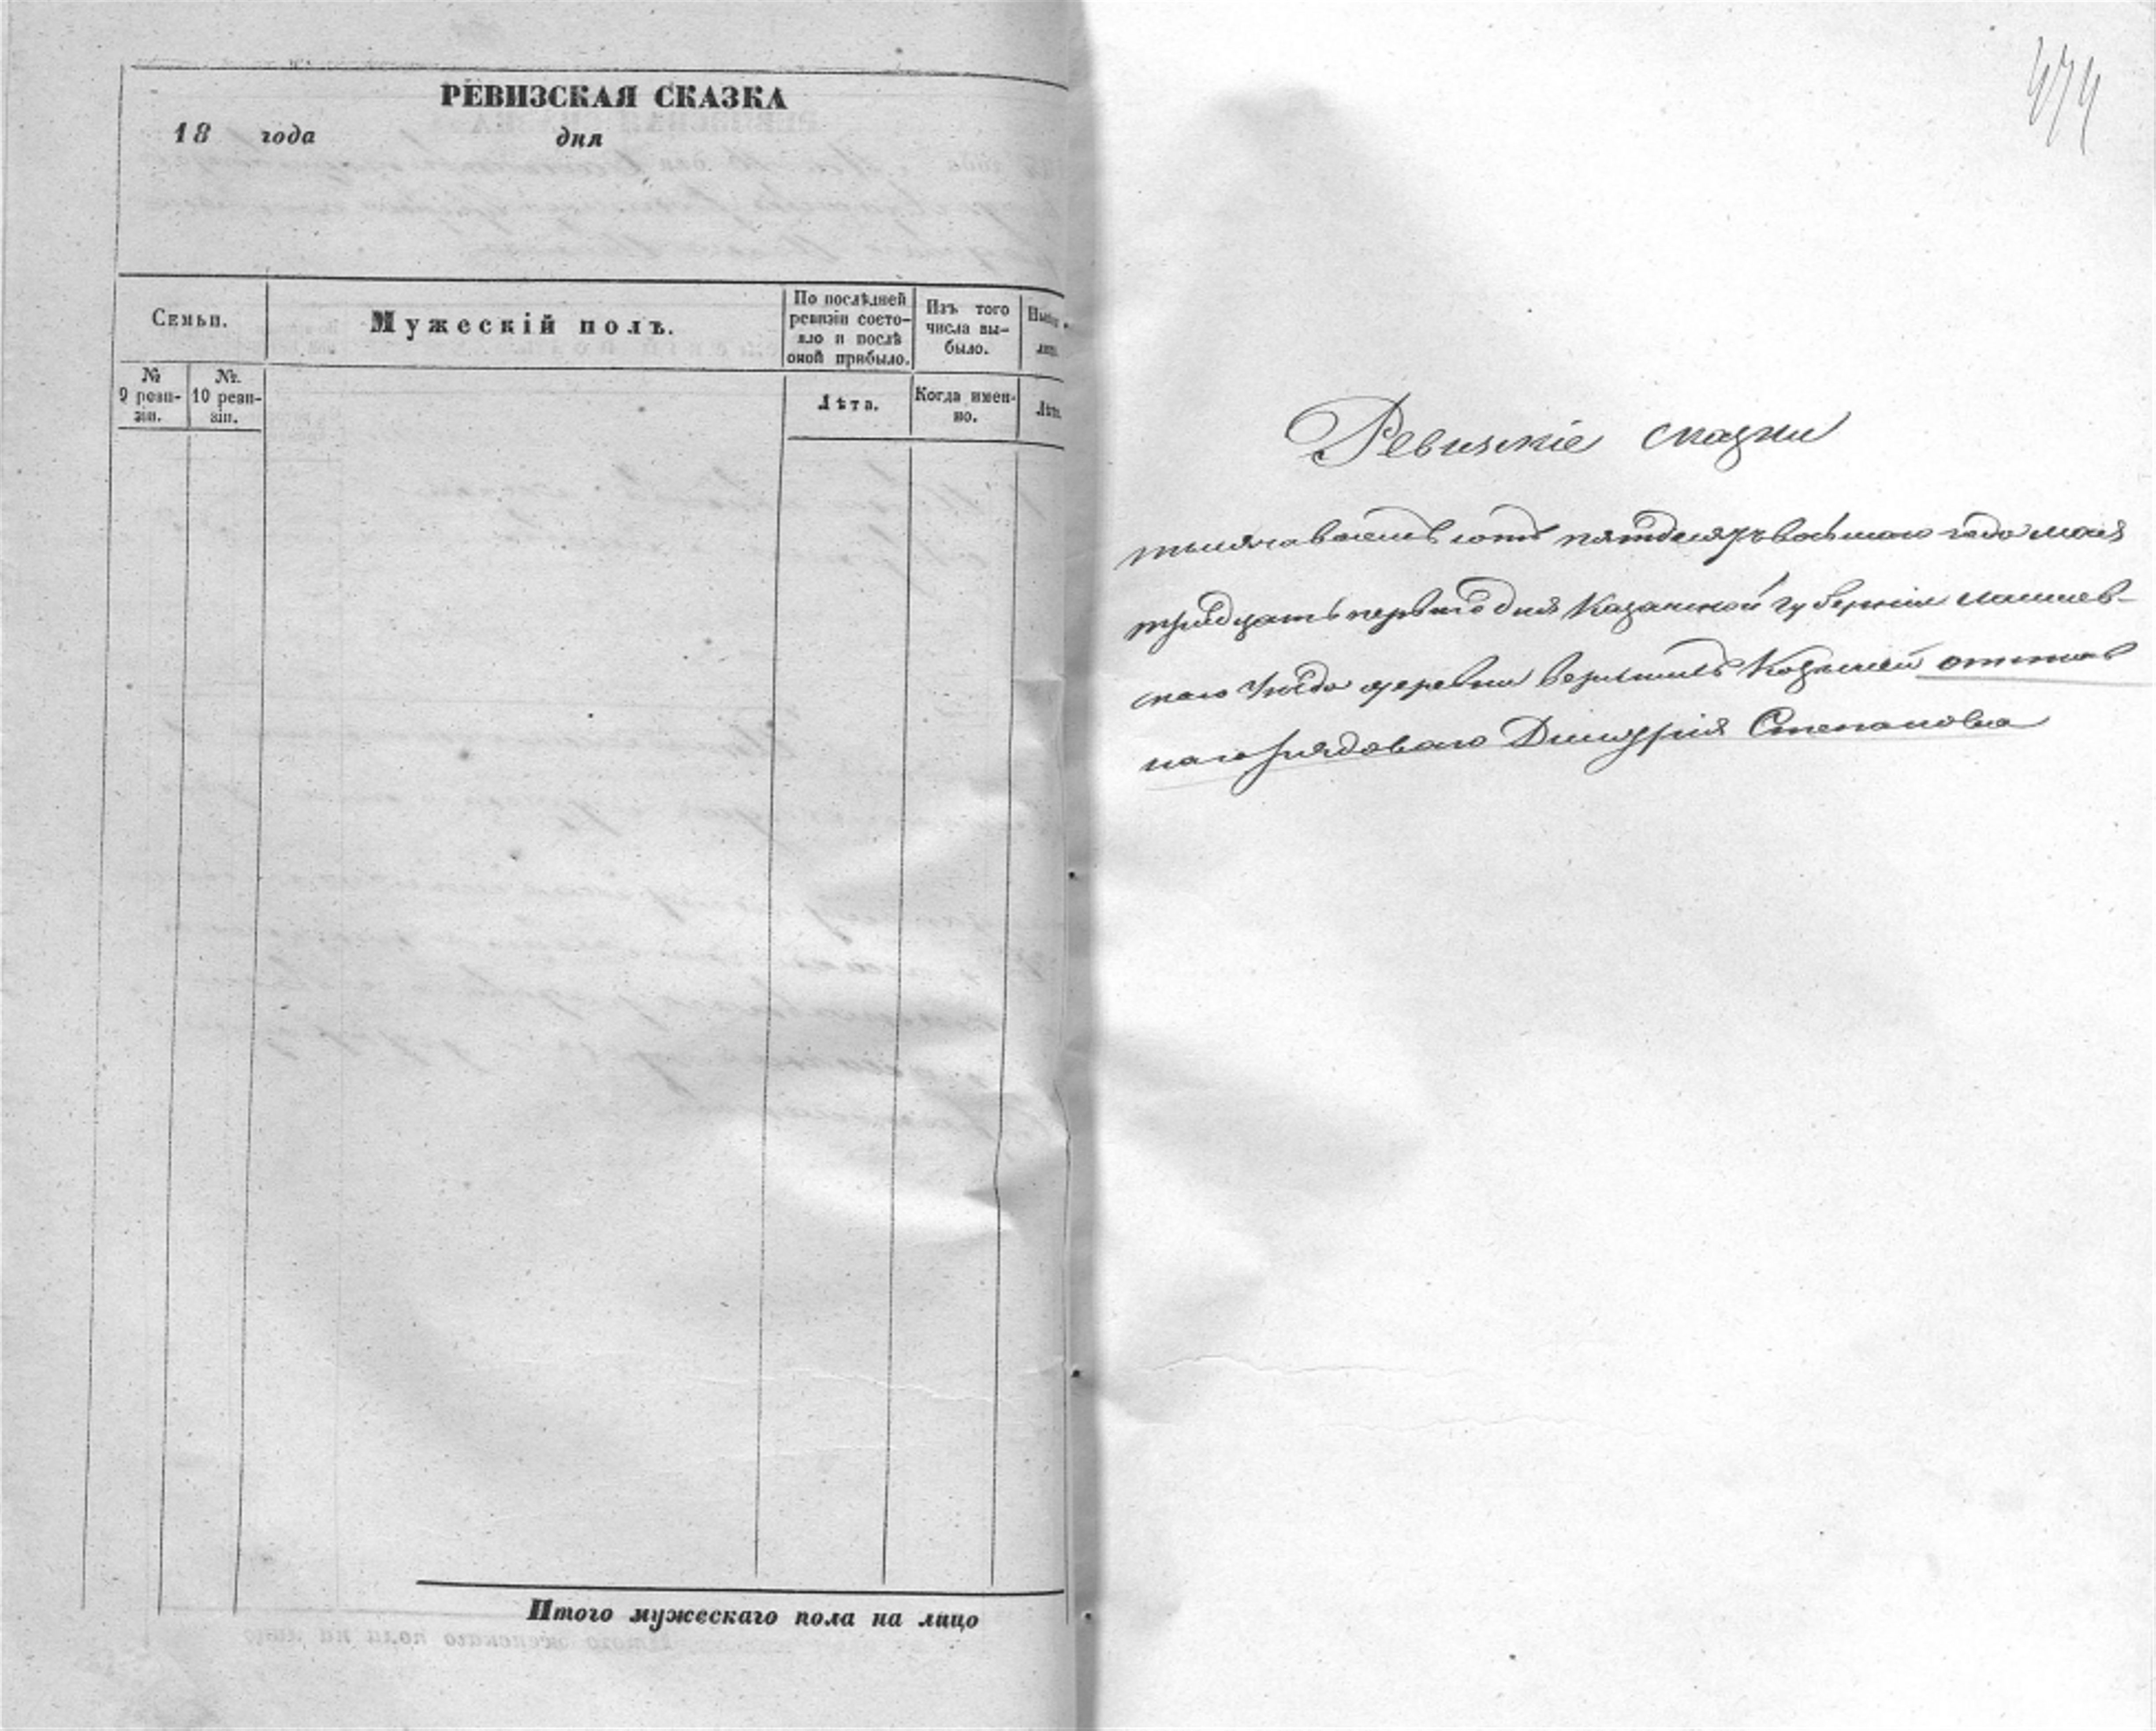 РЕВИЗСКАЯ СКАЗКА
18 года дня
Семьи.
Мужескій полъ.
По послѣдней ревизіи состояло и послѣ оной прибыло.
Изъ того числа выбыло.
№ 9 ревизіи.
№. 10 ревизіи.
Лѣта.
Когда именно.
Лѣта.
Итого мужескаго пола на лицо
474
Ревизскіе сказки
тысяча восемь сотъ пятдесятъ восьмаго года мая
тридцать перваго дня Казанской губерніи лаишев-
скаго Уезда деревни Козылей отстав
наго рядоваго Димитрія Степанова